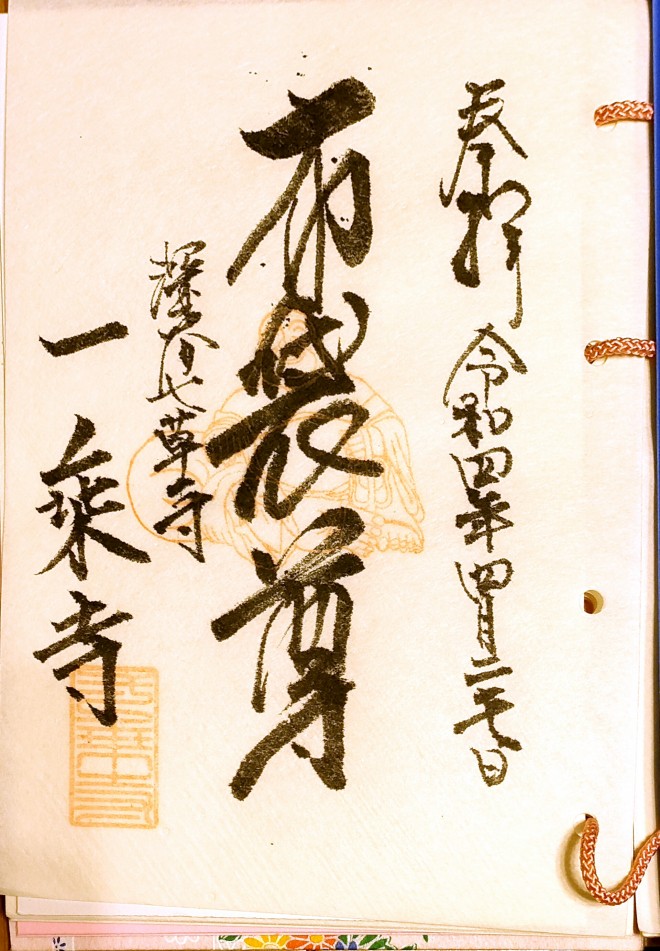 奉拝 令和四年四月二十七日
布袋尊
七草寺
一乗寺